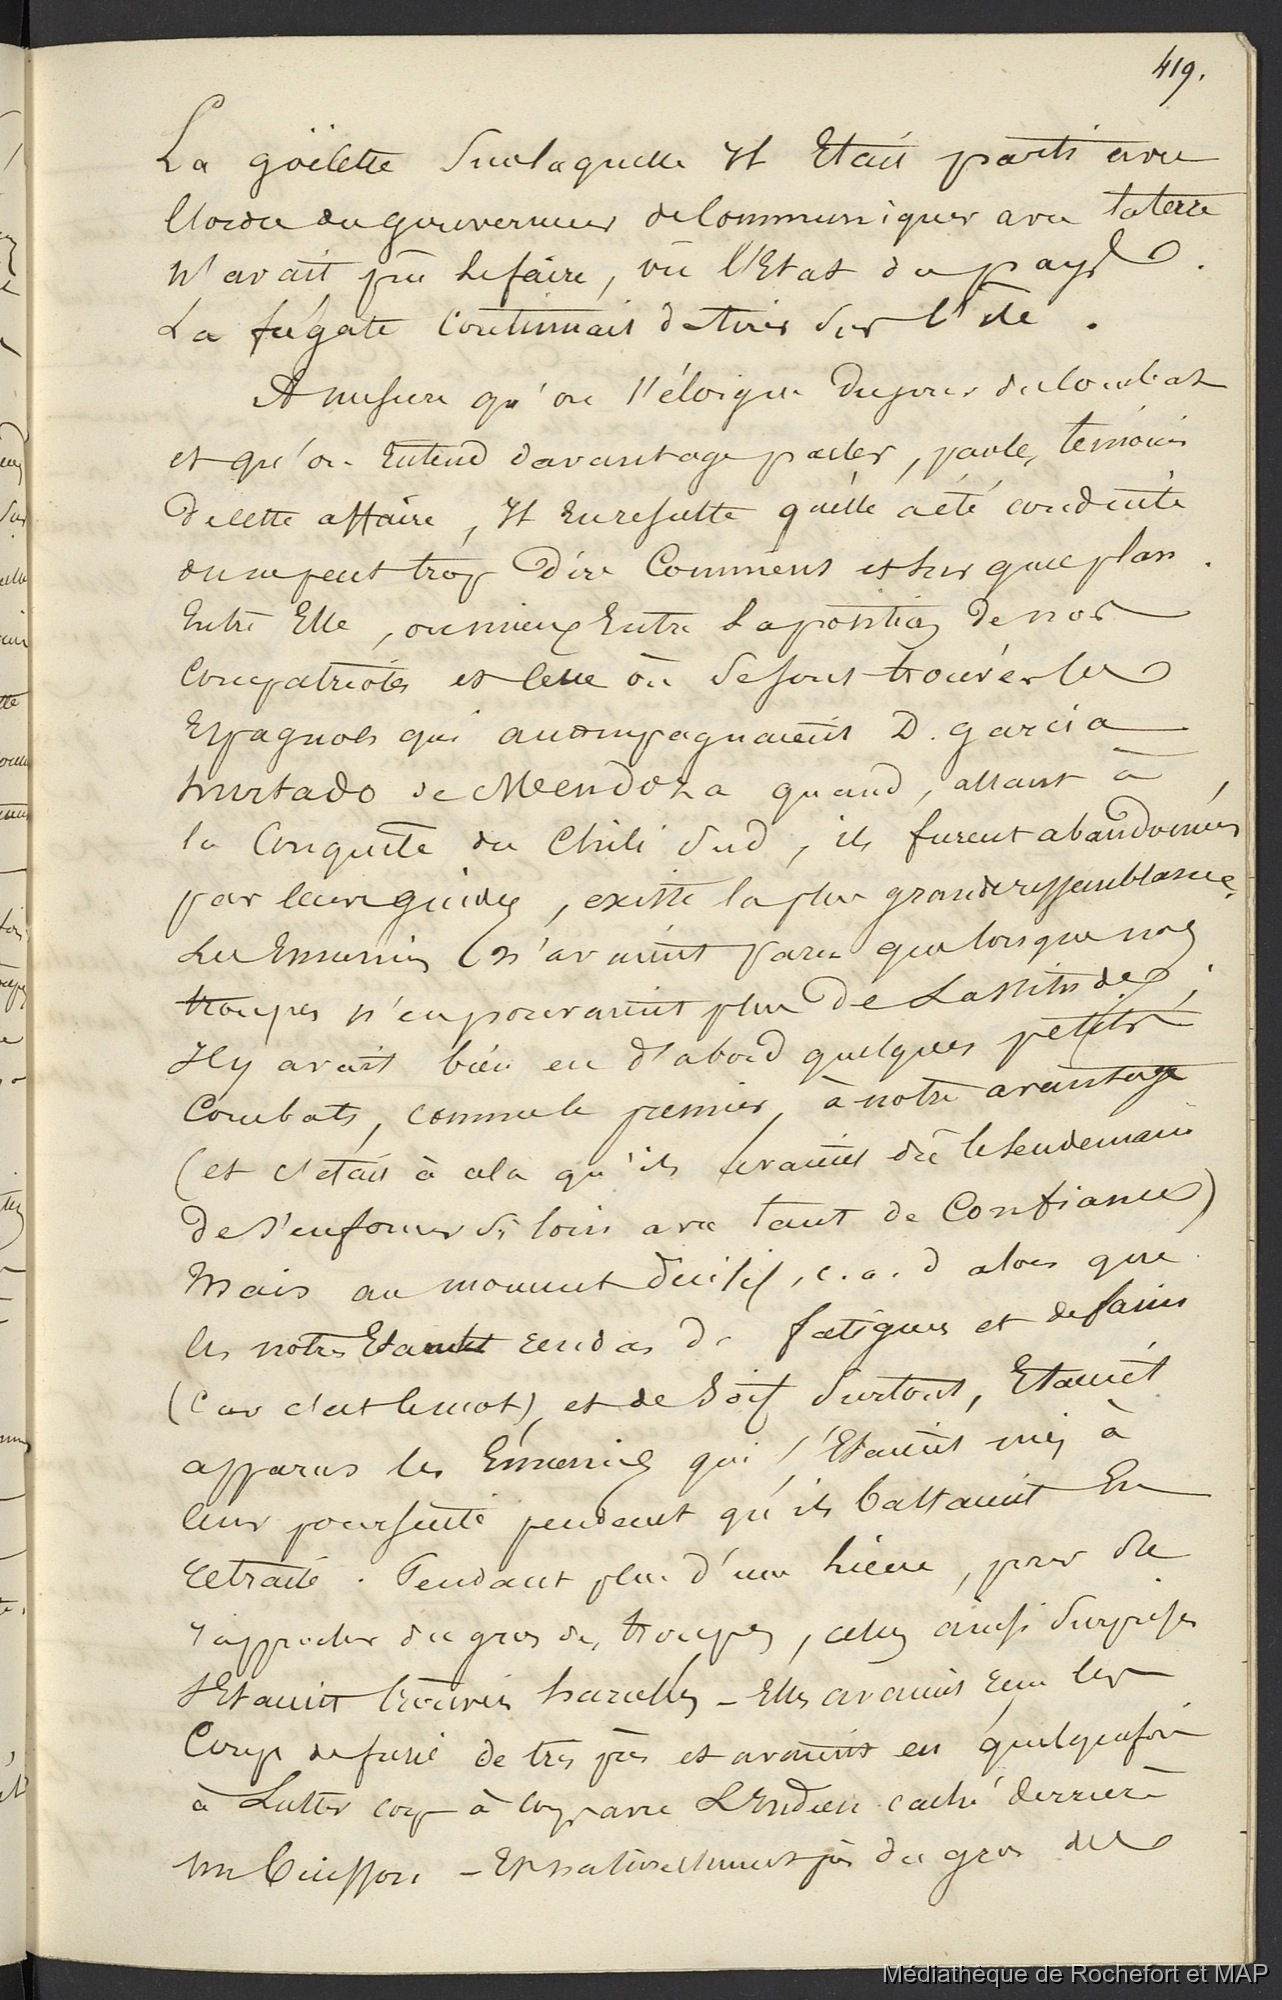 419.
La göëlette Surlaquelle Il Etait parti avec
l'ordre du gouverneur de Communiquer avec laterre
n'avait pu lefaire, vu l'Etat du pays.
La frégate continuait de tirer Sur l'ile.
A mesure qu'on s'éloigne dujour du Combat
et qu'on Entend davantage parler, par les témoins
De cette affaire, Il En resulte qu'elle a été conduite
on ne peut trop Dire Comment et sur quel plan.
Entre Elle, ou mieux Entre La position de nos
Compatriotes et celle où Se sont trouvés les
Espagnols qui accompagnaient D. garcia
hurtado de Mendoza quand, allant à
la Conquête du Chili Sud, ils furent abandonnés,
par leurs guides, existe la plus grande ressemblance.
Les Ennemis n'avaient paru que lorsque nos
troupes n'en pouvaient plus De Lassitude;
Il y avait bien eu d'abord quelques petits
Combats, comme le premier, à notre avantage
(et c'était à cela qu'ils avaient dû le lendemain
De s'enfoncer Si loin avec tant de Confiance)
Mais au moment décisif, c.a.d alors que
les notres Etaient rendus de fatigues et de faim
(Car c'est le mot), et de Soif Surtout, Etaient
apparus les Ennemis qui s'Etaient mis à
leur poursuite pendant qu'ils battaient En
retraite. Pendant plus d'une lieue, pour Se
rapprocher du gros des troupes, celles ainsi Surprises
s'Etaient trouvées harcelées – Elles avaient reçu les
Coups de fusil de très près et avaient eu quelquefois
à Lutter corps à corps avec L'Indien caché derrière
un buisson – Et naturellement près du gros des